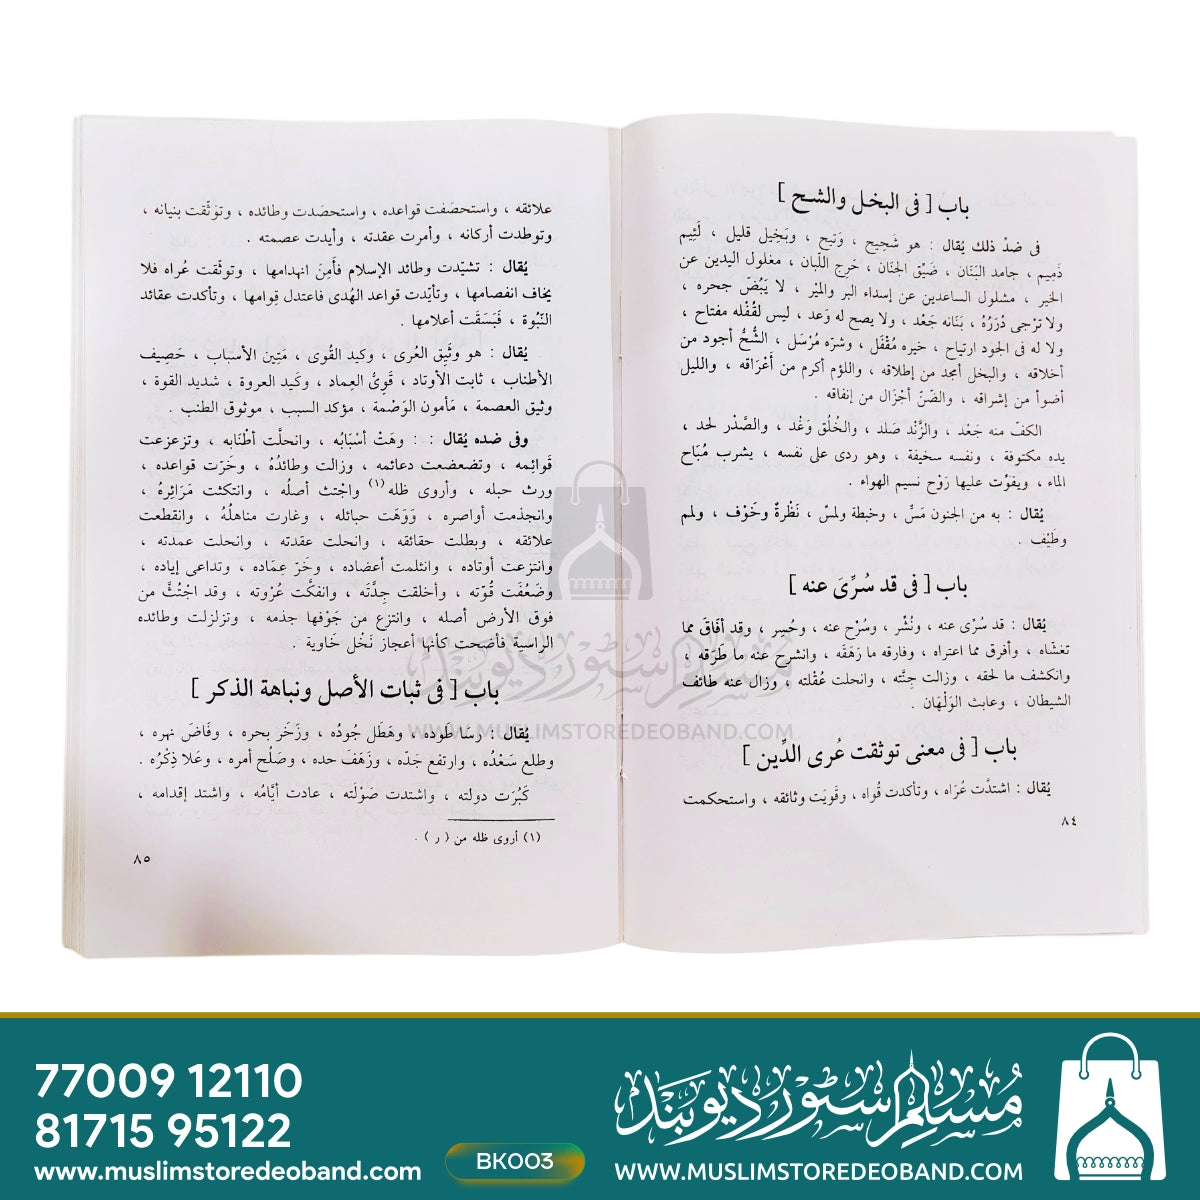 باب [ فى البخل والشح ]
فى ضدّ ذلك يُقال : هو شَحِيح ، وَتِيح ، وبَخِيل قليل ، لَئِيم
ذَمِيم ، جامد البَنَان ، ضَيِّق الجَنَان ، حَرِج اللَّبان ، مغلول اليدين عن
الخير ، مشلول الساعدين عن إسداء البر والميْر ، لا يَبُضّ حجره ،
ولا تُرْجى دُرَرُهُ ، بَنَانه جَعْد ، ولا يصح له وَعد ، ليس لقُفْله مفتاح ،
ولا له فى الجود ارتياح ، خيره مُقْفَل ، وشرّه مُرْسَل ، الشُّحُّ أجود من
أخلاقه ، والبخل أمجد من إطلاقه ، واللؤم أكرم من أَعْرَاقه ، والليل
أضوأ من إشراقه ، والضَنّ أجْزَال من إنفاقه .
الكفّ منه جَعْد ، والزَّنْد صَلد ، والخُلُق وَغْد ، والصَّدْر لحد ،
يده مكتوفة ، ونفسه سخيفة ، وهو ردى على نفسه ، يشرب مُبَاح
الماء ، ويفوّت عليها رَوْح نسيم الهواء .
يُقال : به من الجنون مَسٌّ ، وخبطة ولمسٌ ، نَظْرةٌ وخَوْف ، ولمم
وطَيْف .
باب [ فى قد سُرِّىَ عنه ]
يُقال : قد سُرى عنه ، ونُشْر ، وسُرّح عنه ، وحُسِر ، وقد أفَاقَ مما
تغشّاه ، وأفرق مما اعتراه ، وفارقه ما رَهَقَه ، وانشرح عنه ما طَرَقه ،
وانكشف ما لحقه ، وزالت جِنَّته ، وانحلت عُقْلته ، وزال عنه طائف
الشيطان ، وعابث الوَلْهَان .
باب [ فى معنى توثقت عُرى الدِّين ]
يُقال : اشتدَّت عُرَاه ، وتأكدت قُواه ، وقَويَت وثائقه ، واستحكمت
٨٤
علائقه ، واستحصَفت قواعده ، واستحصَدت وطائده ، وتوَثّقت بنيانه ،
وتوطدت أركانه ، وأمرت عقدته ، وأيدت عصمته .
يُقال : تشيّدت وطائد الإسلام فأَمِنَ انهدامها ، وتوثّقت عُراه فلا
يخاف انفصامها ، وتأيّدت قواعد الهُدى فاعتدل قِوامها ، وتأكدت عقائد
النّبُوة ، فَبَسَقَت أعلامها .
يُقال : هو وثَيِق العُرى ، وكيد القُوى ، مَتِين الأسباب ، حَصِيف
الأطناب ، ثابت الأوتاد ، قَوِىُّ العِماد ، وكَيد العروة ، شديد القوة ،
وثيق العصمة ، مَأمون الوَصْمة ، مؤكد السبب ، موثوق الطنب .
وفى ضده يُقال : : وهَتْ أسْبَابُه ، وانحلَّت أطْنَابه ، وتزعزعت
قَوائِمه ، وتضعضعت دعائمه ، وزالت وطائدُهُ ، وخَرّت قواعده ،
ورث حبله ، وأروى ظله (١) واجْتث أصلُه ، وانتكثت مَرَائِرهُ ،
وانجذمت أواصره ، وَوَهَت حبائله ، وغارت مناهلُهُ ، وانقطعت
علائقه ، وبطلت حقائقه ، وانحلت عقدته ، وانحلت عمدته ،
وانتزعت أوتاده ، وانثلمت أعضاده ، وخَرّ عِمَاده ، وتداعى إياده ،
وضَعُفَت قُوّته ، وأخلقت جِدَّتَه ، وانفكّت عُرْوته ، وقد اجْتُثّ من
فوق الأرض أصله ، وانتزع من جَوْفها جذمه ، وتزلزلت وطائده
الراسية فأضحت كأنها أعجاز نَخْل خَاوية .
باب [ فى ثبات الأصل ونباهة الذكر ]
يُقال : رَسَا طَوده ، وهَطَل جُودُه ، وزَخَر بحره ، وفَاضَ نهره ،
وطلع سَعْدُه ، وارتفع جَدّه ، وزَهَفَ حده ، وصَلُح أمره ، وعَلا ذِكْرُه .
كَبُرَت دولته ، واشتدت صَوْلَته ، عادت أيَّامُه ، واشتد إقدامه ،
(١) أروى ظله من ( ر ) .
٨٥
مُسلم سٹور دیوبند
WWW.MUSLIMSTOREDEOBAND.COM
77009 12110
81715 95122
www.muslimstoredeoband.com
BK003
مُسلم سٹور دیوبند
WWW.MUSLIMSTOREDEOBAND.COM